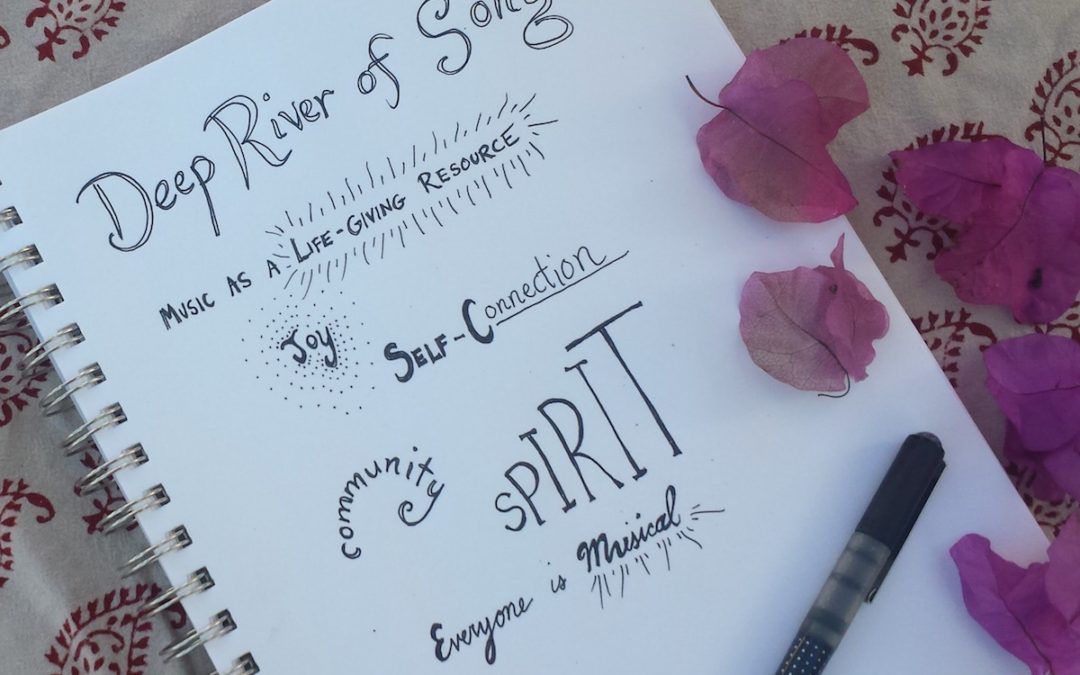 Deep River of Song
Music as a Life-Giving Resource
Joy
Self-Connection
Community
SPIRIT
Everyone is Musical